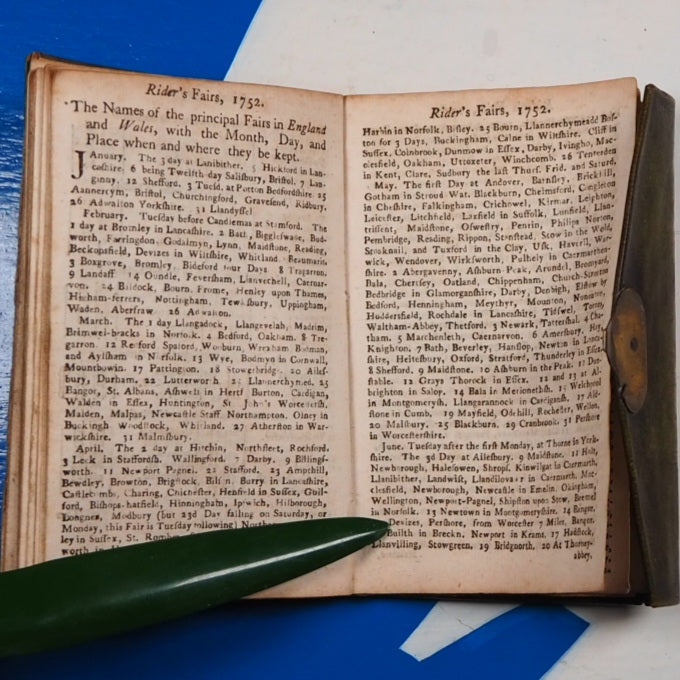 Rider's Fairs, 1752.
The Names of the principal Fairs in England
and Wales, with the Month, Day, and
Place when and where they be kept.
JAnuary. The 3 day at Lanibither. 5 Hickford in Lan-
cashire; 6 being Twelfth-day Salisbury, Bristol. 7 Lan-
ginny. 12 Shefford. 3 Tuesd. at Potton Bedfordshire. 25
Aannercym, Bristol, Churchingford, Gravesend, Kidbury,
26 Adwalton Yorkshire. 31 Llandyssel
February. Tuesday before Candlemas at Stamford. The
1 day at Bromley in Lancashire. 2 Bath, Biggleswade, Bud-
worth, Farringdon. Godalmyn, Lynn, Maidstone, Reading,
Beckonsfield, Devizes in Wiltshire, Whitland. Beaumaris,
3 Boxgrove, Bromley. Bideford four Days. 8 Tragarron,
9 Landaff 14 Oundle, Feversham, Llanvechell, Caernar-
von. 24 Baldock, Bourn, Frome, Henley upon Thames,
Higham-ferrers, Nottingham, Tewksbury, Uppingham,
Walden, Aberfraw. 26 Adwalton.
March. The 1 day Llangadock, Llangevelah, Madrim,
Brimwel-bracks in Norfolk. 4 Bedford, Oakham. 8 Tre-
garron. 12 Spalding, Worburn, Wrexham, Bodman,
and Aylsham in Norfolk. 13 Wye, Bodmyn in Cornwall,
Mountbowin. 17 Pattington. 18 Stowerbridge. 20 Ailes-
bury, Durham. 22 Lutterworth. 24 Llannerchymed. 25
Bangor, St. Albans, Ashwell in Hertf. Burton, Cardigan,
Walden in Essex, Huntington, St. John's Worcestersh.
Malden, Malpas, Newcastle Staff. Northampton. Olney in
Buckingh Woodstock, Whitland. 27 Atherston in War-
wickshire. 31 Malmsbury.
April. The 2 day at Hitchin, Northfleet, Rochford.
3 Leek in Staffordsh. Wallingford. 7 Darby. 9 Billings-
worth. 11 Newport Pagnel. 22 Stafford. 23 Ampthill,
Bewdley, Browton, Brigstock, Bilson. Burry in Lancashire,
Castlecombs, Charing, Chichester, Henfield in Sussex, Guil-
ford, Bishops-hatfield, Hinningham, Ipwich, Hilborough,
Longnor, Modbury (but 23d Day falling on Saturday, or
Monday, this Fair is Tuesday following)
ley in Sussex, St.
worth in
Rider's Fairs, 1752.
Harbin in Norfolk, Bisley. 25 Bourn, Llannerchymeadd Bos-
ton for 3 Days, Buckingham, Calne in Wiltshire. Cliff in
Sussex, Coinbrook, Dunmow in Essex, Darby, Ivingho, Mac-
clesfield, Oakham, Uttoxeter, Winchcomb. 26 Tenterden
in Kent, Clare, Sudbury the last Thurs. Frid. and Saturd.
May. The first Day at Andover, Barnsley, Brickhill,
Gotham in Stroud Wat. Blackburn, Chelmsford, Congleton
in Cheshire, Falkingham, Crichowel, Kirmar, Leighton,
Leicester, Litchfield, Laxfield in Suffolk, Lunfield, Llan-
trissent, Maidstone, Oswestry, Penrin, Philips Norton,
Pembridge, Reading, Rippon, Stenstead, Stow in the Wold,
Stocknail, and Tuxford in the Clay, Usk, Haveril, War-
wick, Wendover, Wirksworth, Pulhely in Caermarthen-
shire. 2 Abergavenny, Ashburn-Peak, Arundel, Bromyard,
Bala, Chertsey, Oatland, Chippenham, Church-Stretton
Bedbridge in Glamorganshire, Darby, Denbigh, Elstow by
Bedford, Henningham, Meythyr, Mounton, Noneaton,
Huddersfield, Rochdale in Lancashire, Tidswel,
Waltham-Abbey, Thetford. 3 Newark, Tattershal. 4 Cha-
tham. 5 Marchenleth, Caernarvon. 6 Amersbury,
Knighton. 7 Bath, Beverley, Hanslop, Newton in Lanca-
shire, Heltesbury, Oxford, Stratford, Thunderley in Essex.
8 Shefford. 9 Maidstone. 10 Ashburn in the Peak. 17 Dun-
stable. 12 Grays Thorock in Essex. 12 and 13 at Al-
brighton in Salop. 14 Bala in Merionethsh. 15 Welchpool
in Montgomerysh. Llangarannock in Cardigansh. 17 Ald-
stone in Cumb. 19 Mayfield, Odehill, Rochester, Wellon,
20 Malsbury. 25 Blackburn. 29 Cranbrook. 31 Pershore
in Worcestershire.
June. Tuesday after the first Monday, at Thorne in York-
shire. The 3d Day at Ailesbury. 9 Maidstone. 11 Holt,
Newborough, Halesowen, Shrops. Kinwilgat in Caermarth,
Llanibither, Landwist, Llandilovawr in Caermarth. Mac-
clesfield, Newborough, Newcastle in Emelin. Okingham,
Wellington, Newport-Pagnel, Shipston upon Stow, Bremel
in Norfolk. 13 Newtown in Montgomrysh. 14 Bangor.
Devizes, Pershore, from Worcester 7 Miles, Bangor.
Builth in Breckn. Newport in Krams. 17 Hadstock,
Llanvilling, Stowgreen. 19 Bridgnorth, 20 At Thorney-
abbey,